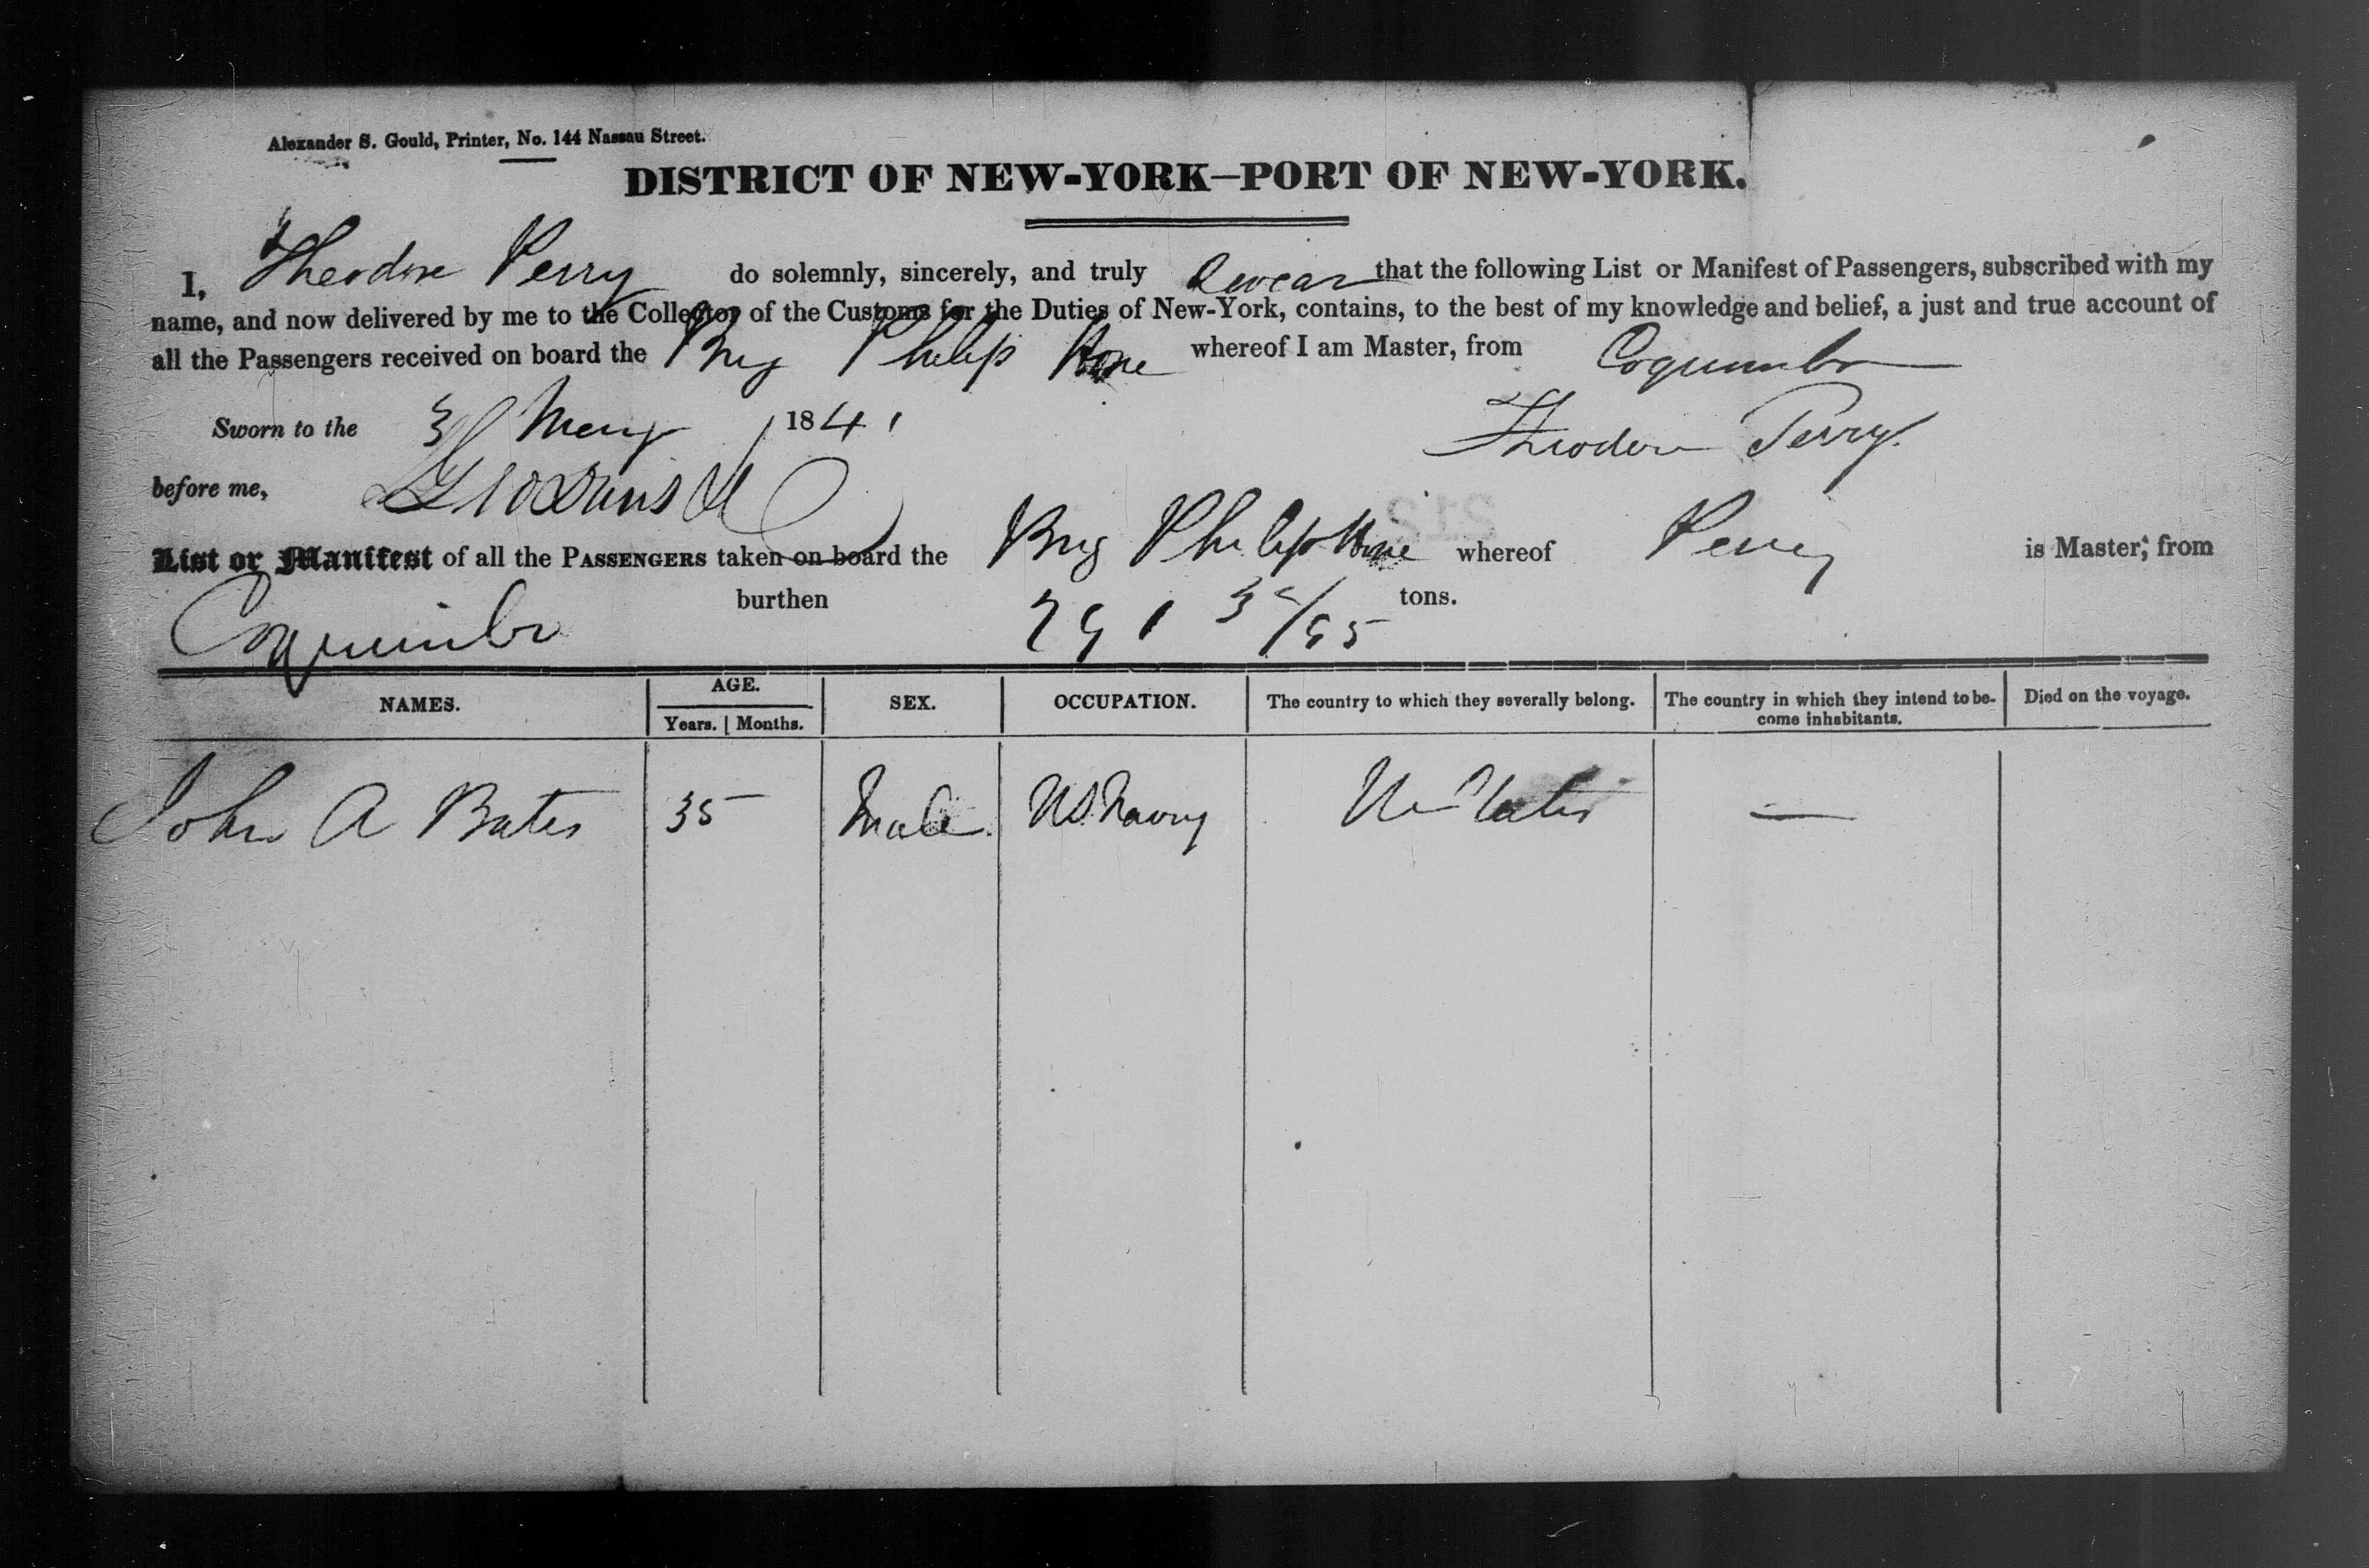 Alexander S. Gould, Printer, No. 144 Nassau Street.
DISTRICT OF NEW-YORK—PORT OF NEW-YORK.
I, Theodore Perry do solemnly, sincerely, and truly swear that the following List or Manifest of Passengers, subscribed with my
name, and now delivered by me to the Collector of the Customs for the Duties of New-York, contains, to the best of my knowledge and belief, a just and true account of
all the Passengers received on board the Brig Philip Hone whereof I am Master, from Coquimbo
Sworn to the May 1841
Theodore Perry.
before me,
List or Manifest of all the PASSENGERS taken on board the Brig Philip Hone whereof Perry is Master, from
Coquimbo burthen 291 /95 tons.
NAMES. AGE. SEX. OCCUPATION. The country to which they severally belong. The country in which they intend to be- Died on the voyage.
Years. Months. come inhabitants.
John A Bates 35 Male. US. Navy Un States —